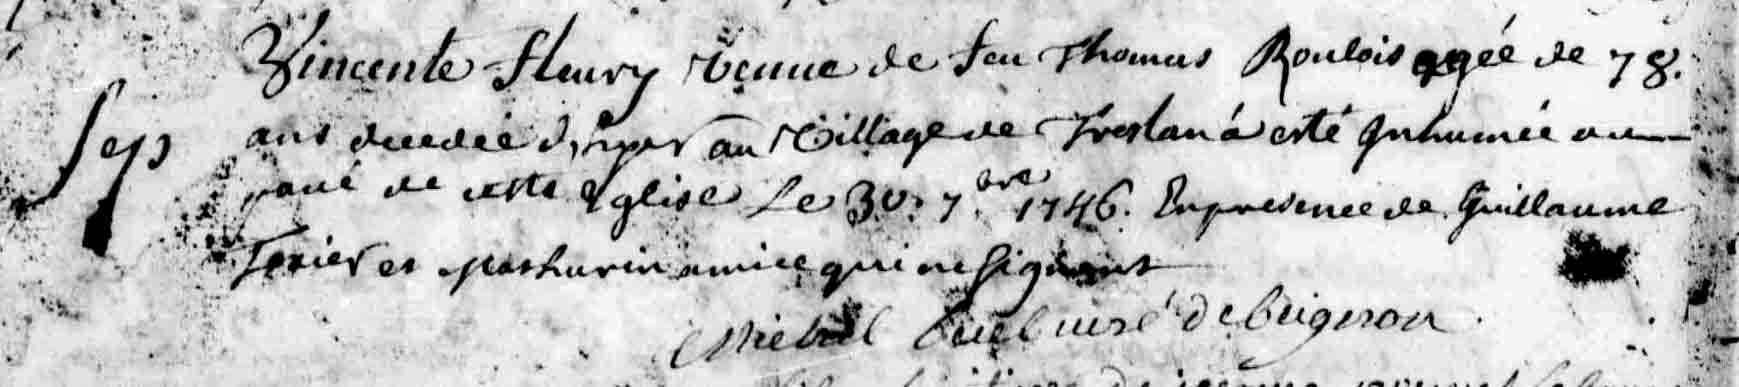 Vincente fleury veuue de feu Thomas Roulois agée de 78.
Sep ans decedée d'hyer au Village de Treslan á esté Inhumée au
paué de cette Eglise Le 30. 7.bre 1746. En presence de Guillaume
Texier et Mathurin amice qui ne signent
Michel curé de beignon